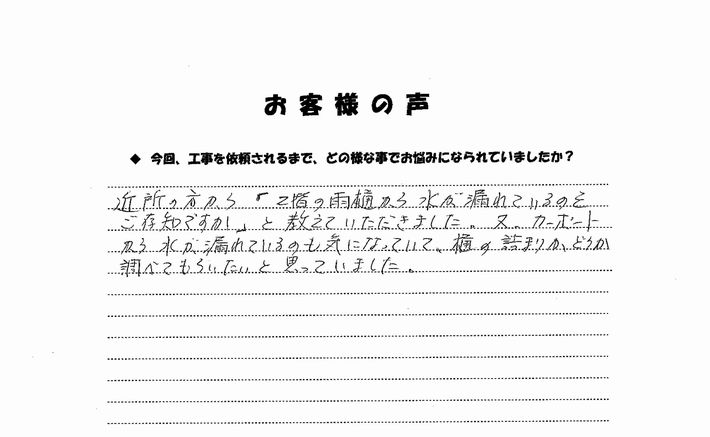 お客様の声
◆ 今回、工事を依頼されるまで、どの様な事でお悩みになられていましたか？
近所の方から「2階の雨樋から水が漏れているのを
ご存知ですか!」と教えていただきました。又、カーポート
から水が漏れているのも気になっていて、樋の詰まりか、どうか
調べてもらいたいと思っていました。